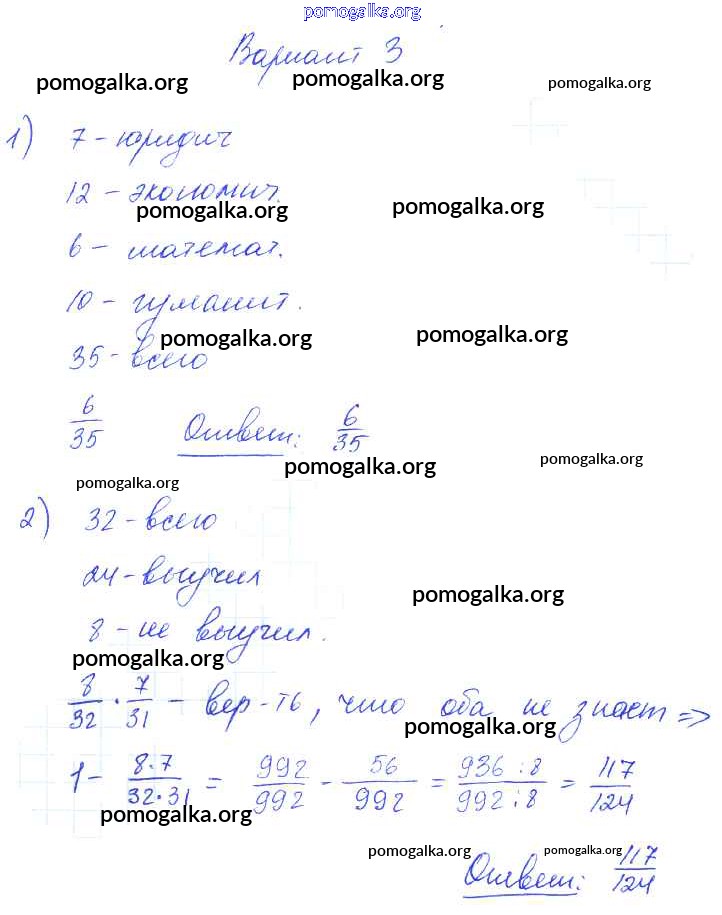 pomogalka.org
Вариант 3
pomogalka.org pomogalka.org pomogalka.org
1) 7 - юридич
12 - экономич.
pomogalka.org pomogalka.org
6 - математ.
10 - гуманит.
pomogalka.org pomogalka.org
35 - всего
6/35 Ответ: 6/35
pomogalka.org pomogalka.org
pomogalka.org
2) 32 - всего
24 - выучил
pomogalka.org
8 - не выучил.
pomogalka.org
8/32 · 7/31 - вер-ть, что оба не знают =>
pomogalka.org
1 - 8·7/32·31 = 992/992 - 56/992 = 936:8/992:8 = 117/124
pomogalka.org
pomogalka.org pomogalka.org
Ответ: 117/124